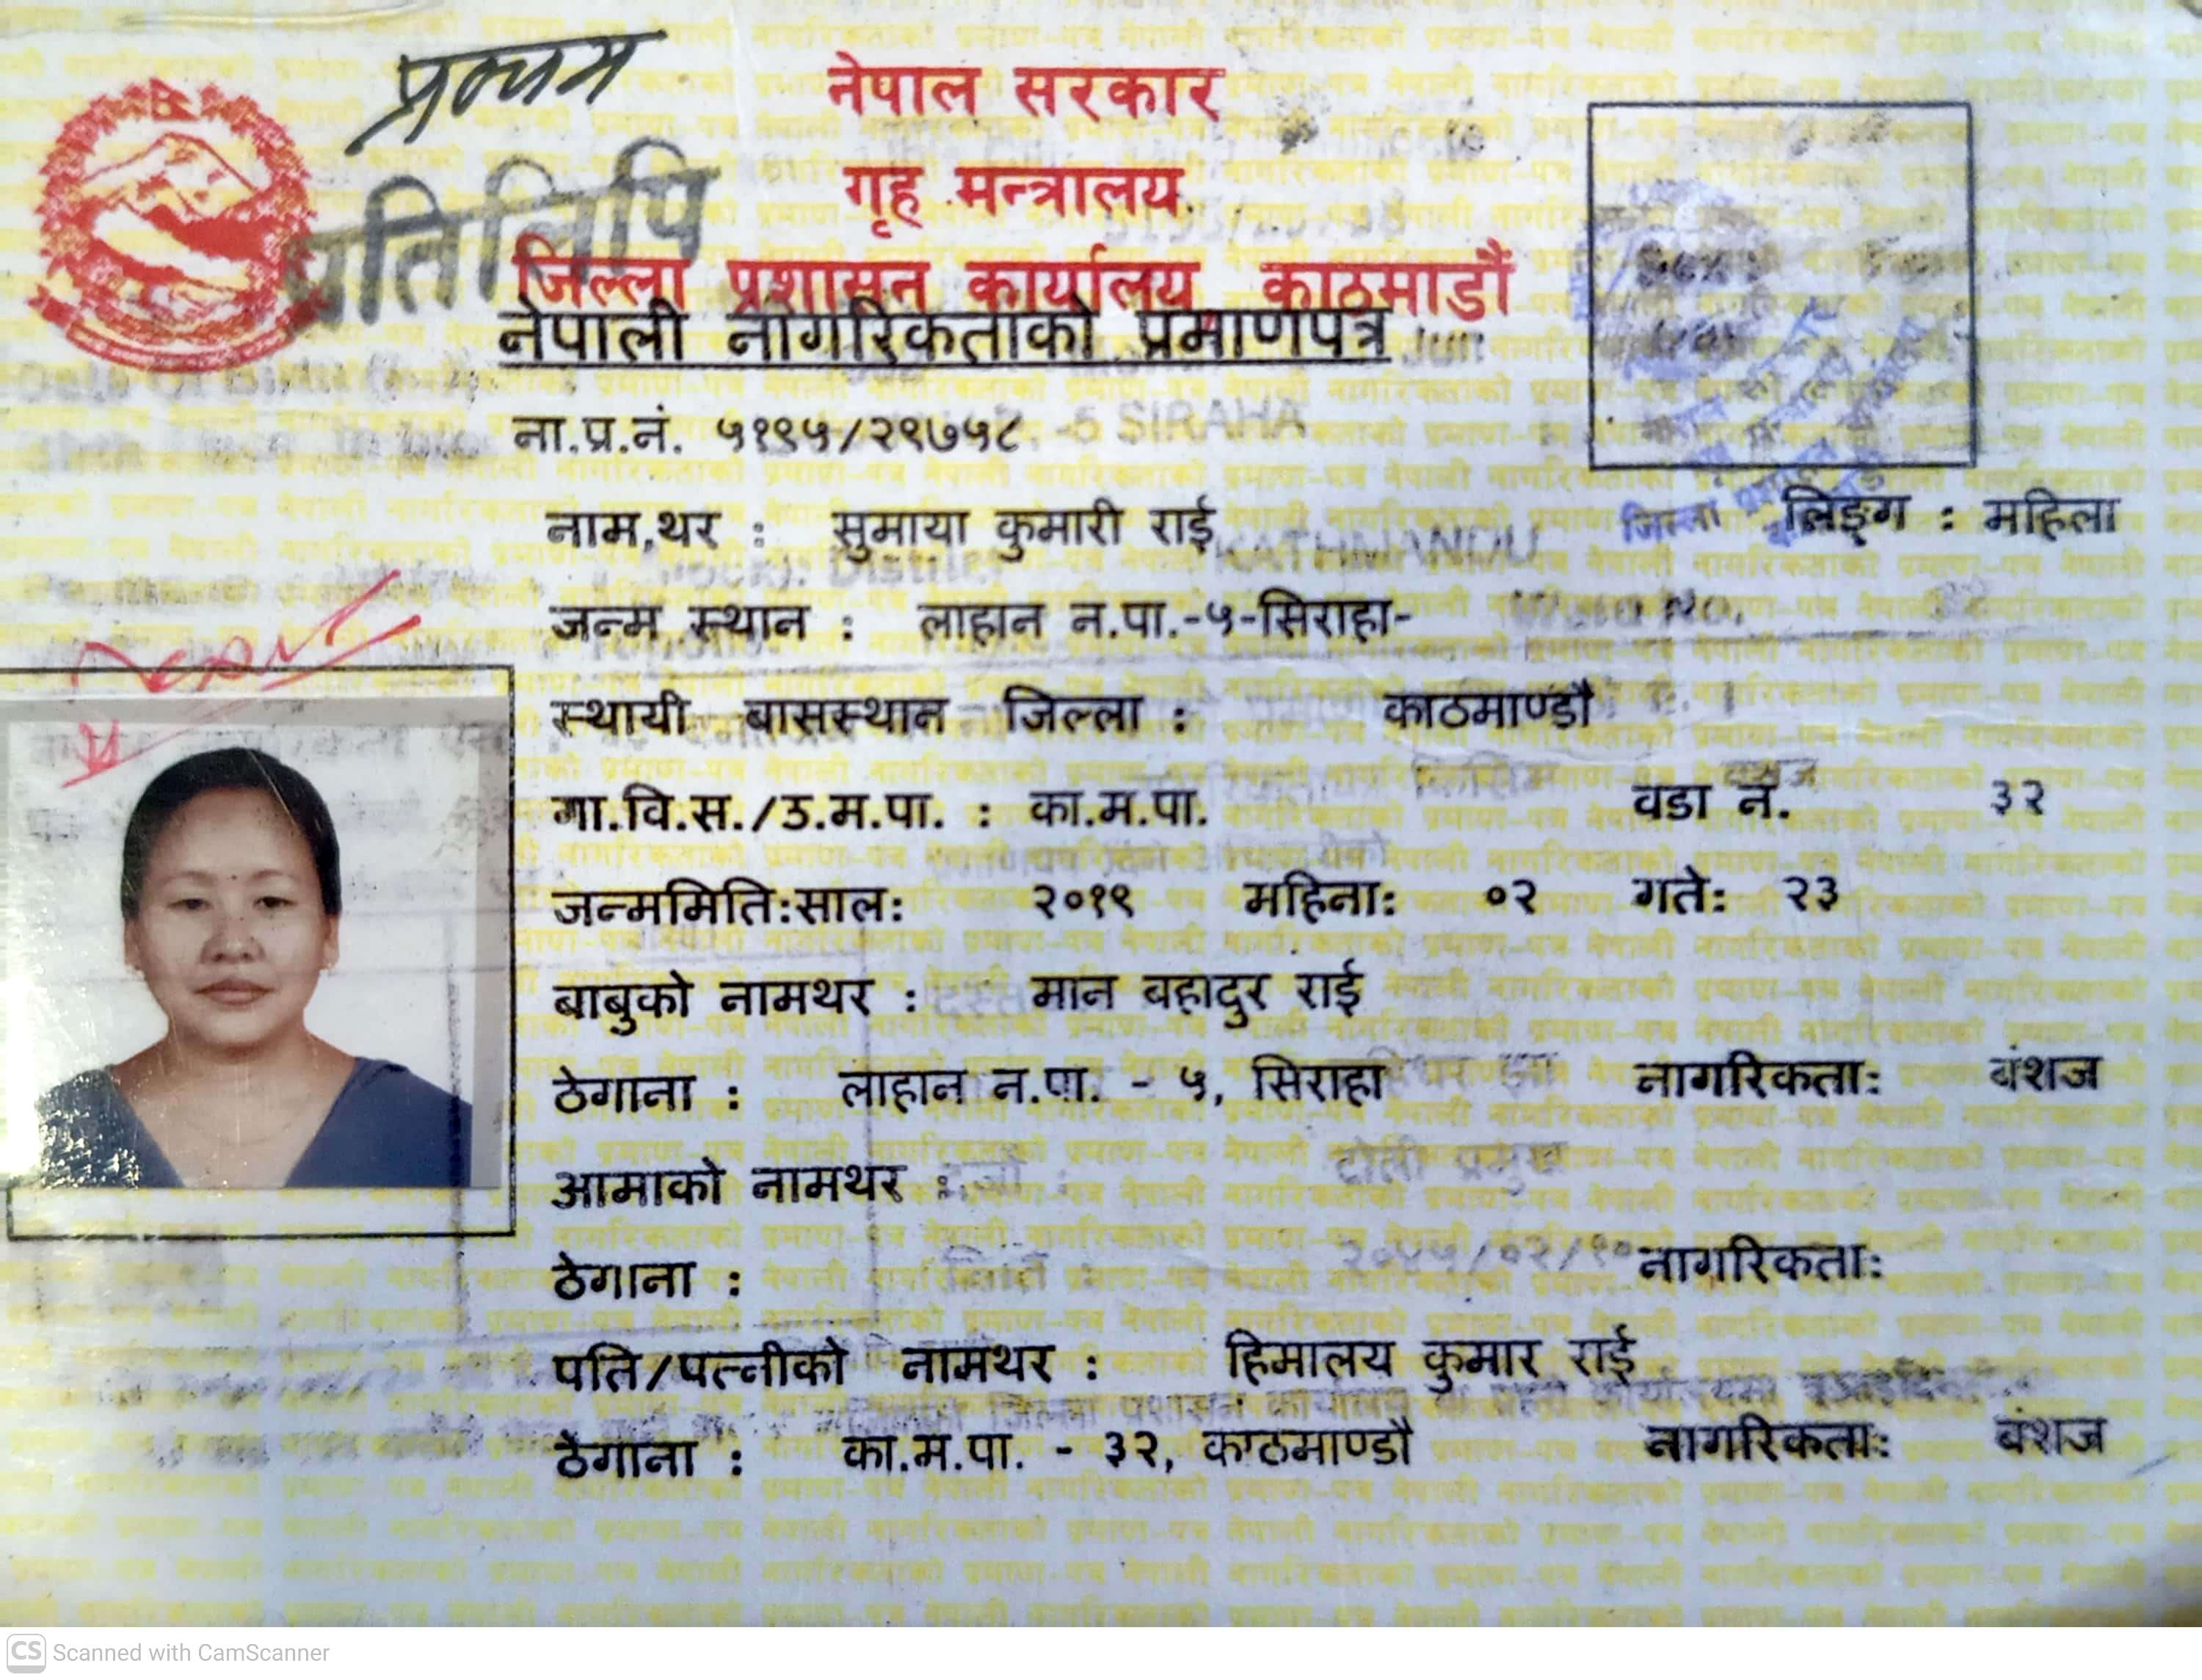 प्रथम
प्रतिलिपि
नेपाल सरकार
गृह मन्त्रालय
जिल्ला प्रशासन कार्यालय काठमाडौं
नेपाली नागरिकताको प्रमाणपत्र
ना.प्र.नं. ५१९५/२९७५८
-5 SIRAHA
नाम,थर : सुमाया कुमारी राई
लिङ्ग : महिला
KATHMANDU
जन्म स्थान : लाहान न.पा.-५-सिराहा-
स्थायी बासस्थान जिल्ला : काठमाण्डौ
गा.वि.स./उ.म.पा. : का.म.पा. वडा नं. ३२
जन्ममिति:साल: २०१९ महिना: ०२ गते: २३
बाबुको नामथर : मान बहादुर राई
ठेगाना : लाहान न.पा. - ५, सिराहा नागरिकता: बंशज
आमाको नामथर :
टोली प्रमुख
ठेगाना : नागरिकता:
पति/पत्नीको नामथर : हिमालय कुमार राई
ठेगाना : का.म.पा. - ३२, काठमाण्डौ नागरिकता: बंशज
CS Scanned with CamScanner